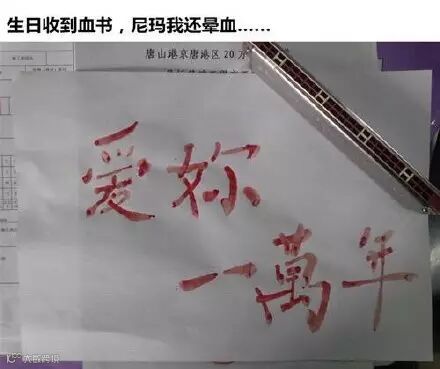 生日收到血书，尼玛我还晕血……
唐山港京唐港区20万
爱妳
一萬年